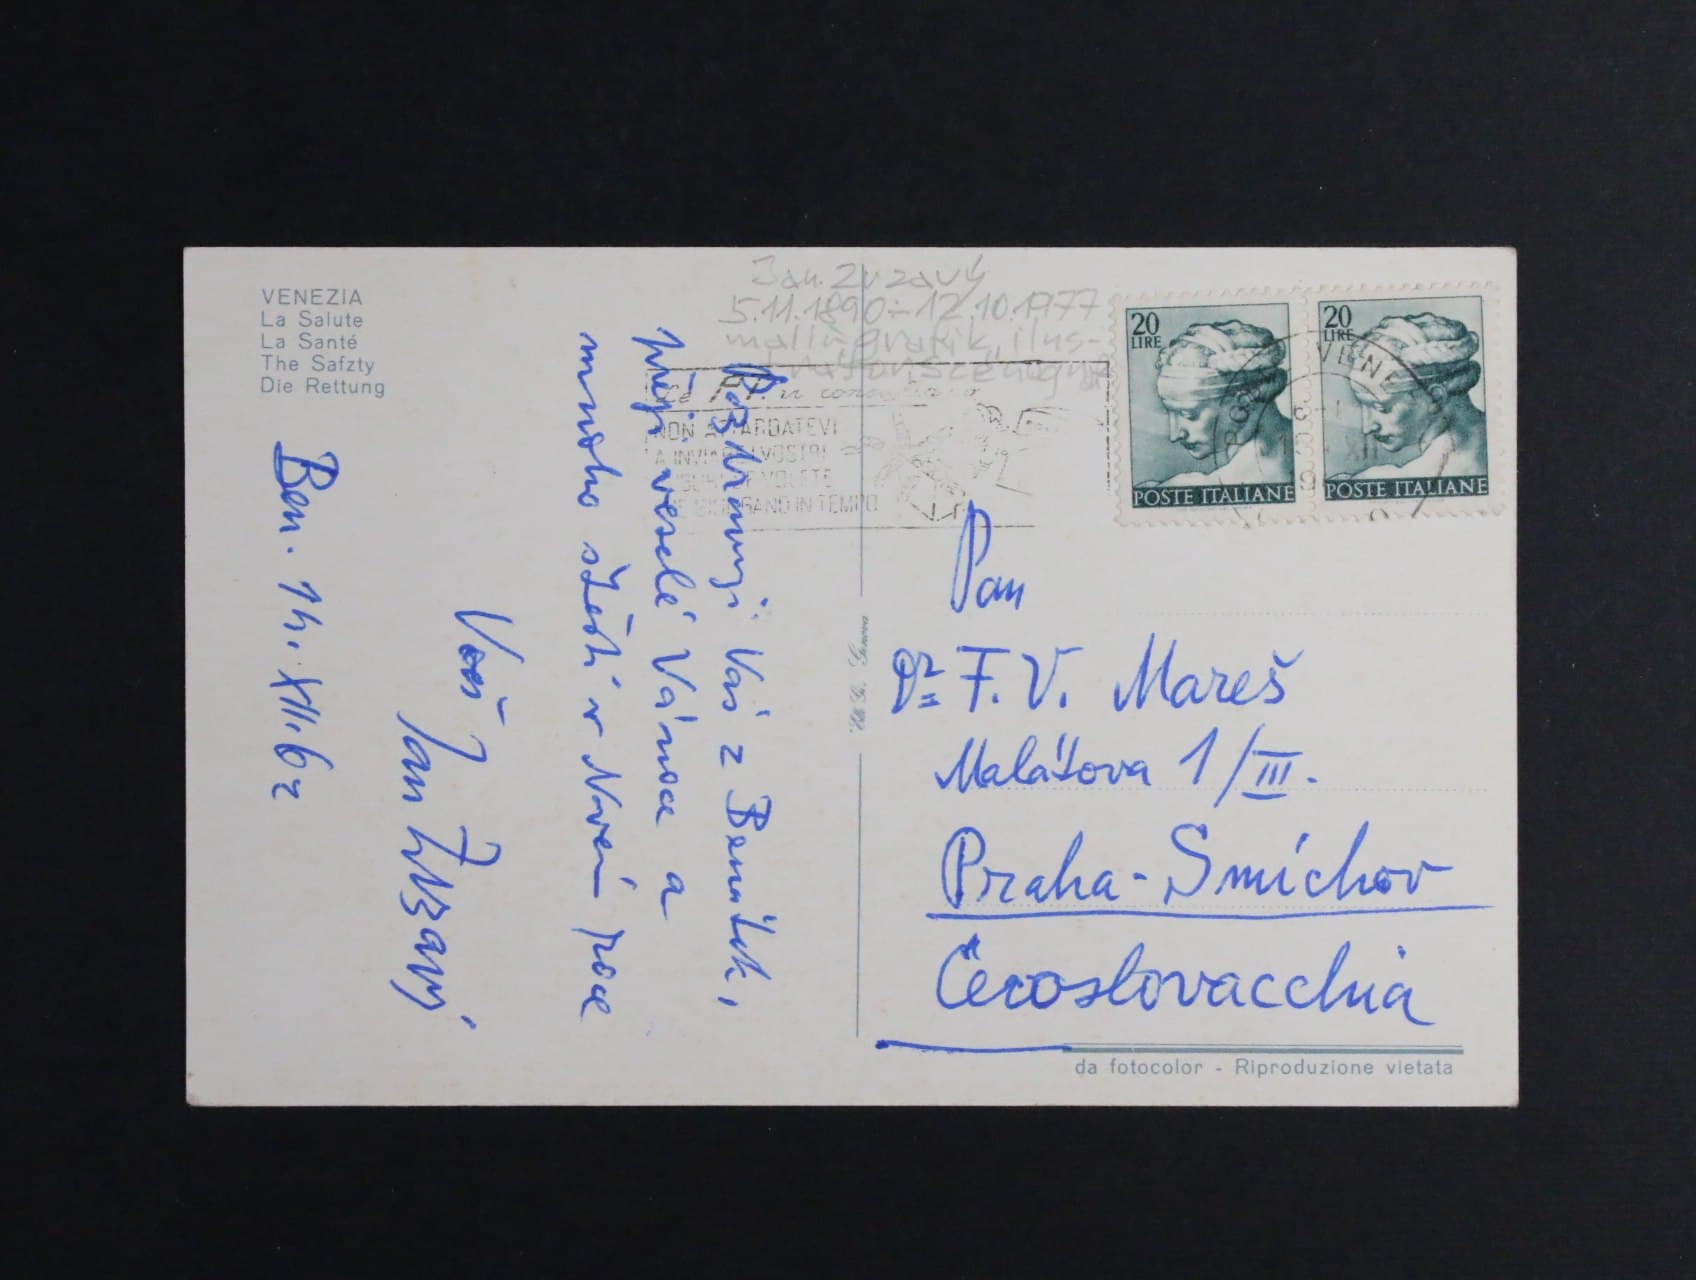 VENEZIA
La Salute
La Santé
The Safzty
Die Rettung
Jan Zrzavý
5.11.1890 ÷ 12.10.1977
malíř, grafik, ilus-
NON ATTARDATEVI
IN TEMPO
20
LIRE
POSTE ITALIANE
20
LIRE
POSTE ITALIANE
Pozdravuji Vás z Benátek,
přeji veselé Vánoce a
mnoho štěstí v Novém roce
Váš
Jan Zrzavý
Ben. 14. XII. 62
Genova
Pan
Dr. F. V. Mareš
Malátova 1/III.
Praha - Smíchov
Čecoslovacchia
da fotocolor - Riproduzione vietata